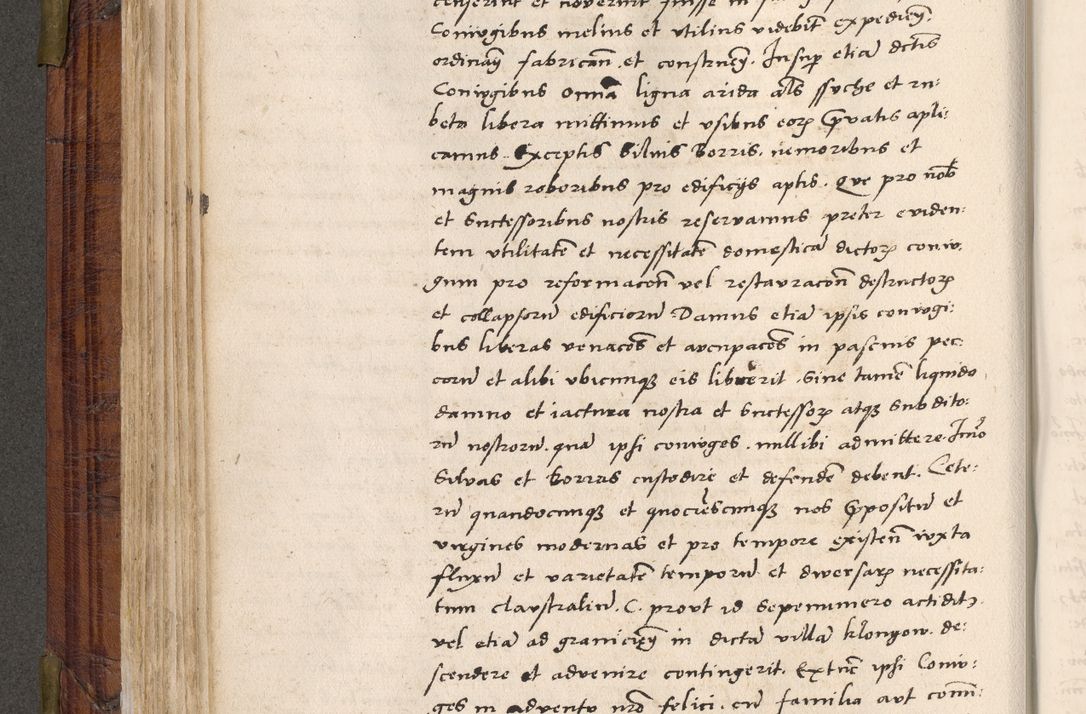 Coniugibus melius et utilius videbit̄ expedieņ.
ordinaņ fabrican̄. et construeņ. Insuꝑ etiā dctīs
Coniugibus omnā ligna arida als̄ ssuche et ru-
beta libera mittimus et usibus eorꝫ ꝓvatis apli:
camus. Exceptis Silvis Borris. nemoribus et
magnis roboribus pro edificijs aptis. Que pro nob̄
et Successoribus nostris reservamus preter eviden:
tem utilitatē et necessitatē domesticā dictorꝫ coniu,
gum pro reformacōn vel restauracōn destructorꝫ
et collapsorū edificiorū. Damus etiā ipsis coniugi:
bus liberas venacōs et aucupacōs in pascuis pec:
corū et alibi ubicumqꝫ eis libuerit. Sine tamē liquido
damno et iactura nostra et Successorꝫ atqꝫ Subdito:
rū nostrorū. quā ipsi coniuges. nullibi admittere. Imo
Silvas et Borras custodire et defendē debent. Cete:
rū quandocumqꝫ et quociēscumqꝫ nos ꝓpositū et
virgines modernas et pro tempore existen̄ iuxta
fluxū et varietatē temporū et diversarꝫ necessita:
tum claustraliū. C. prout id Sepenumero accidit.
vel etiā ad graniciēņ in dicta villa klonyow. de:
scendere et advenire contingerit. Extūc ipsi Coniu:
ges in adventu nrō felici. cū familia aut comī: